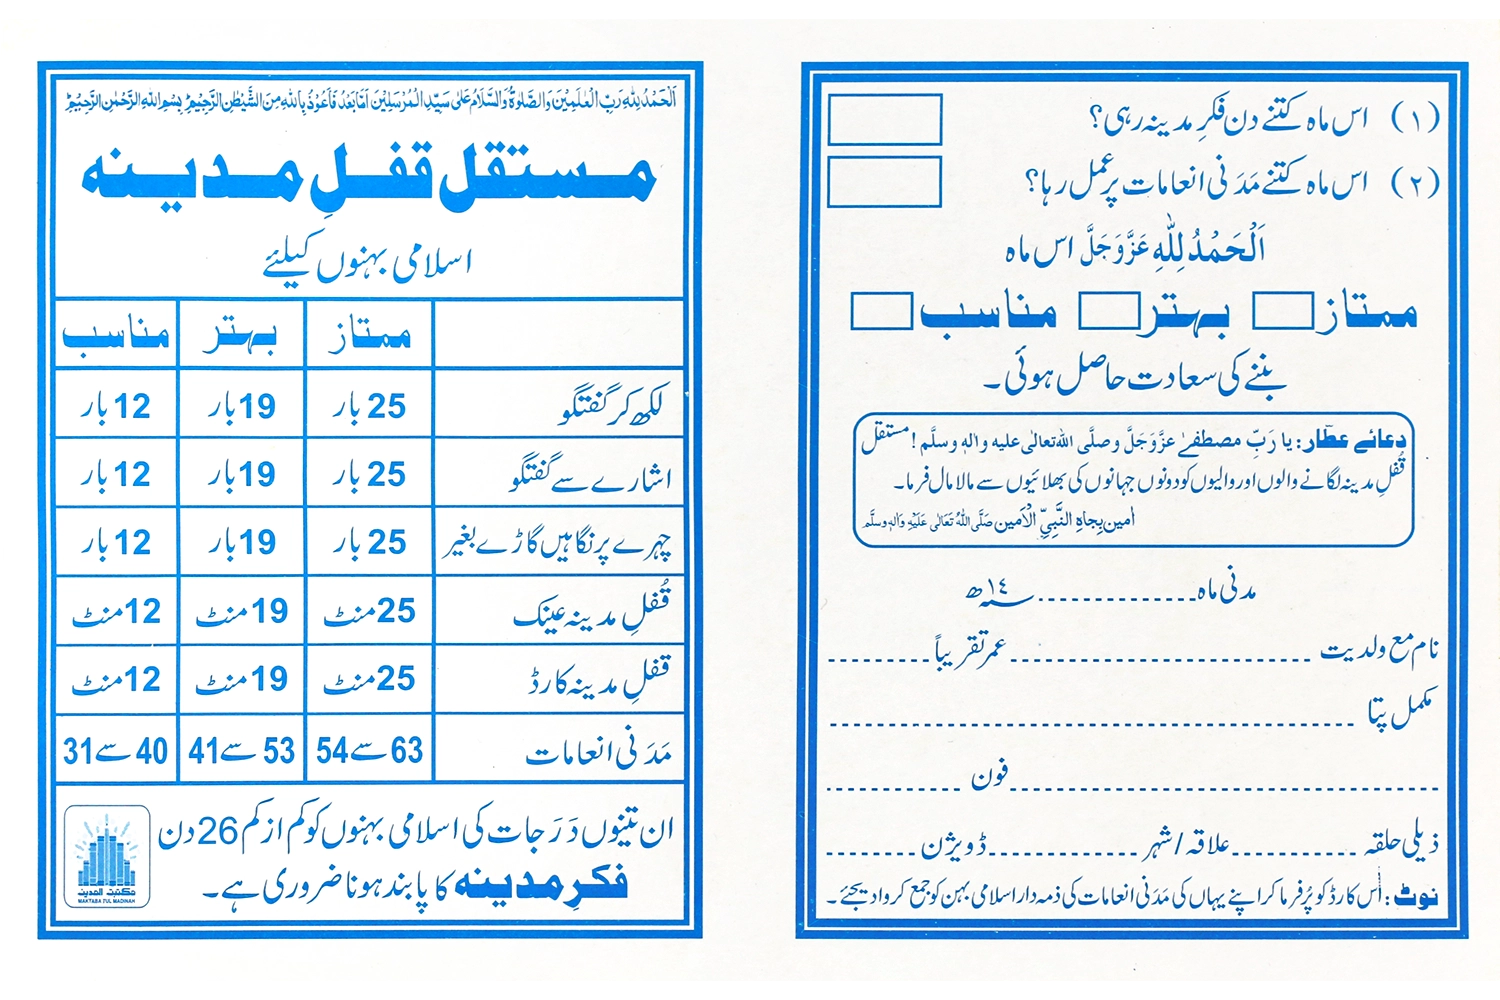 اَلْحَمْدُ لِلّٰهِ رَبِّ الْعٰلَمِيْنَ وَالصَّلٰوةُ وَالسَّلَامُ عَلٰى سَيِّدِ الْمُرْسَلِيْنَ اَمَّا بَعْدُ فَاَعُوْذُ بِاللّٰهِ مِنَ الشَّيْطٰنِ الرَّجِيْمِ بِسْمِ اللّٰهِ الرَّحْمٰنِ الرَّحِيْمِ
مستقل قفلِ مدینہ
اسلامی بہنوں کیلئے
ممتاز بہتر مناسب
لکھ کر گفتگو 25 بار 19 بار 12 بار
اشارے سے گفتگو 25 بار 19 بار 12 بار
چہرے پر نگاہیں گاڑے بغیر 25 بار 19 بار 12 بار
قُفلِ مدینہ عینک 25 منٹ 19 منٹ 12 منٹ
قفلِ مدینہ کارڈ 25 منٹ 19 منٹ 12 منٹ
مَدَنی انعامات 63 سے 54 53 سے 41 40 سے 31
ان تینوں دَرَجات کی اسلامی بہنوں کو کم از کم 26 دن
فکرِ مدینہ کا پابند ہونا ضروری ہے۔
مکتبۃ المدینہ
MAKTABA TUL MADINAH
(۱) اس ماہ کتنے دن فکرِ مدینہ رہی؟
(۲) اس ماہ کتنے مَدَنی انعامات پر عمل رہا؟
اَلْحَمْدُ لِلّٰهِ عَزَّوَجَلَّ اس ماہ
ممتاز بہتر مناسب
بننے کی سعادت حاصل ہوئی۔
دعائے عطّار: یا رَبِّ مصطفےٰ عَزَّوَجَلَّ و صلَّی اللہ تعالٰی علیہ واٰلہٖ وسلَّم ! مستقل
قُفلِ مدینہ لگانے والوں اور والیوں کو دونوں جہانوں کی بھلائیوں سے مالا مال فرما۔
اٰمین بِجاہِ النَّبِیِّ الْاَمین صَلَّی اللہُ تَعَالٰی عَلَیْہِ وَاٰلِہٖ وسلَّم
مدنی ماہ .............. سنہ ١٤ھ
نام مع ولدیت .............................. عمر تقریباً ..........
مکمل پتا ......................................................
............................................ فون ..............
ذیلی حلقہ ............. علاقہ/شہر ............... ڈویژن .........
نوٹ: اُس کارڈ کو پُر فرما کر اپنے یہاں کی مَدَنی انعامات کی ذمہ دار اسلامی بہن کو جمع کروا دیجئے۔